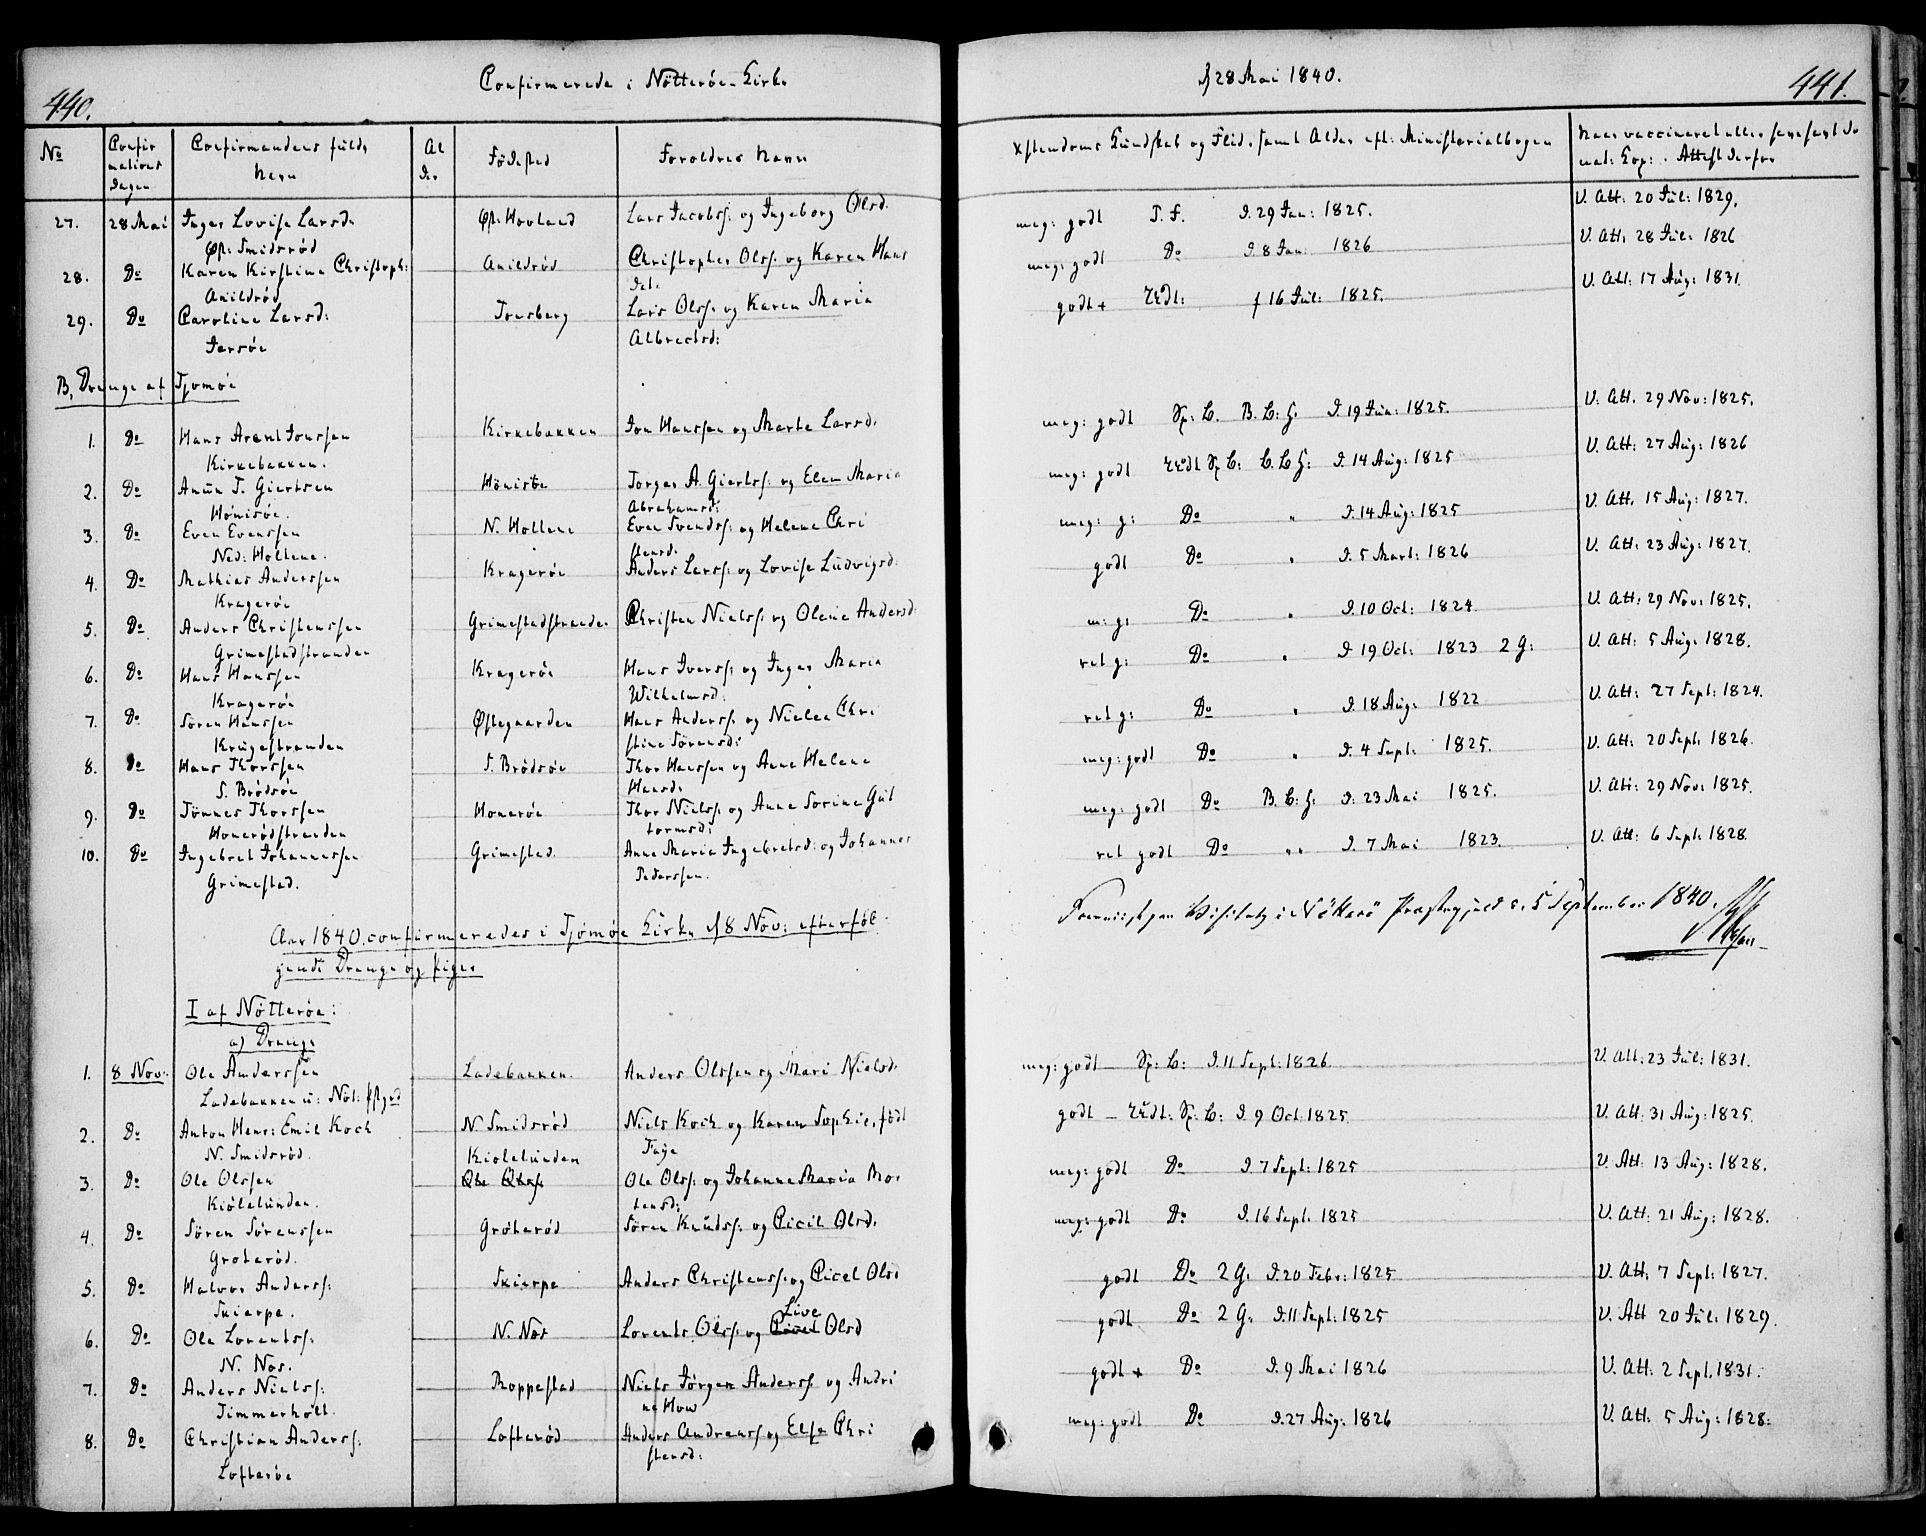 440.
Confirmerede i Nötterøe Kirke
No
Confir
mations
dagen
Confirmandens fulde
Navn
Al
der
Födested
Foreldres Navn
27. 28 Mai Inger Lovise Larsd. Øst: Hovland Lars Jacobss: og Ingeborg Olsd.
Øst: Smidsrød
28. Do Karen Kirstine Christoph: Anildrød Christopher Olss: og Karen Hans
Anildrød dat.
29. Do Caroline Larsd: Tonsberg Lars Olss: og Karen Maria
Jersöe Albrectsd:
B, Drenge af Tjømøe
1. Do Hans Arent Jonssen Kirkebakken Jon Hanssen og Marte Larsd.
Kirkebakken.
2. Do Anun T. Giertsen Hönisöe Torger A. Giertss: og Elen Maria
Hönisöe. Abrahamsd:
3. Do Even Evenssen N. Hollene Even Svendss: og Helene Chri
Ned: Hollene. stensd.
4. Do Mathias Anderssen Kragerøe Anders Larss: og Lovise Ludvigsd.
Kragerøe
5. Do Anders Christenssen Grimestadstranden Christen Nielss: og Olene Andersd.
Grimestadstranden
6. Do Hans Hanssen Kragerøe Hans Iverss: og Inger Maria
Kragerøe Wilhelmsd:
7. Do Sören Hanssen Østegaarden Hans Anderss: og Nielea Chri
Krugestranden stine Sörensd:
8. Do Hans Thorssen S. Brödsöe Thor Hanssen og Anne Helene
S. Brödsöe Hansd.
9. Do Tönnes Thorssen Honerøe Thor Nielss: og Anne Sorine Gul
Honerödstranden tormsd:
10. Do Ingebret Johannessen Grimestad Anne Maria Ingebretsd: og Johannes
Grimestad. Pederssen.
Aar 1840. confirmeredes i Tjömøe Kirke d 8 Nov: efterføl
gende Drenge og Piger
I af Nötterøe:
a) Drenge
1. 8 Nov: Ole Anderssen Ladebakken. Anders Olssen og Mari Nielsd.
Ladebakken u: Nöt: Pstgrd
2. Do Anton Henr: Emil Koch N. Smidsröd Niels Koch og Karen Sophie, födt
N. Smidsröd. Faye
3. Do Ole Olssen Kiölelunden Ole Olss: og Johanne Maria Mor
Kiölelunden. tensd:
4. Do Sören Sörenssen Groteröd Sören Knudss: og Cicil Olsd.
Groteröd.
5. Do Halvor Anderss: Skierpe Anders Christenss: og Cicel Olsd
Skierpe.
6. Do Ole Lorentss: N. Nes Lorents Olss: og Cicel Live Olsd
N. Nes.
7. Do Anders Nielss: Roppestad Niels Jörgen Anderss og Andri
Timmerholt. ne How
8. Do Christian Anderss: Lofteröd Anders Andreass og Else Chri
Lofteröe stensd:
d 28 Mai 1840.
441.
Xstendoms Kundskab og Flid, samt Alder eft: Ministerialbogen
Naar vaccineret eller
Attest derfor
meg: godt T. F. D. 29 Jan: 1825. V. Att: 20 Jul: 1829.
meg: godt Do D. 8 Jan: 1826 V. Att. 28 Jul: 1826
godt + f 16 Jul: 1825. V. Att: 17 Aug: 1831.
meg: godt Sp: L. B. L: H. D. 19 Jun: 1825. V. Att. 29 Nov: 1825.
meg: godt D. 14 Aug: 1825 V. Att: 27 Aug: 1826
meg: g: Do " D. 14 Aug: 1825 V. Att. 15 Aug: 1827.
godt Do " D. 5 Mart: 1826 V. Att: 23 Aug: 1827.
m: g: Do " D. 10 Oct: 1824. V. Att: 29 Nov: 1825.
ret g: Do " D 19 Oct: 1823 2 G: V. Att: 5 Aug: 1828.
ret g: Do " D. 18 Aug: 1822 V. Att: 27 Sept: 1824.
meg: godt Do " D. 4 Sept: 1825. V. Att: 20 Sept. 1826.
meg: godt Do B. L: H. D: 23 Mai 1825. V. Att: 29 Nov: 1825.
ret godt Do " D. 7 Mai 1823. V. Att: 6 Sept. 1828.
i Nötterö Præstegjeld d. 5 September 1840.
meg: godt Sp: L: D. 11 Sept: 1826. V. Att: 23 Jul: 1831.
godt Sp: L: D. 9 Oct: 1825. V. Att: 31 Aug: 1825.
meg: godt Do D. 7 Sept: 1825 V. Att: 13 Aug: 1828.
meg: godt Do D. 16 Sept. 1825 V. Att: 21 Aug: 1828.
godt Do 2 G. D. 20 Febr: 1825 V. Att: 7 Sept: 1827.
godt Do 2 G. D. 11 Sept: 1825 V. Att 20 Jul: 1829.
godt + Do D. 9 Mai 1826 V. Att: 2 Sept. 1831.
meg: godt Do D. 27 Aug: 1826 V. Att: 5 Aug: 1828.